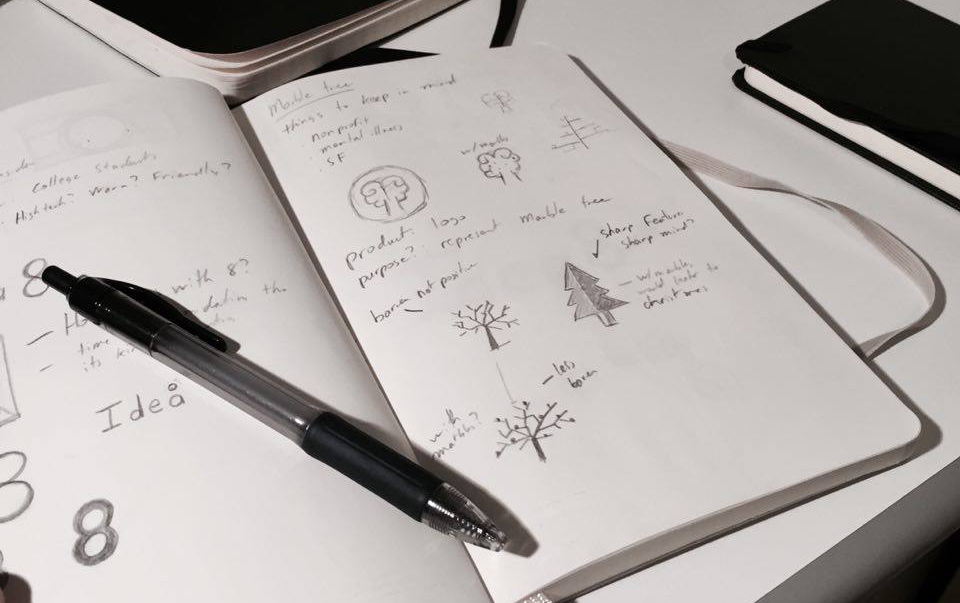 College Students
High tech? Warm? Friendly?
8
with 8?
time
its
Ideå
8
8
Marble tree
things to keep in mind
· nonprofit
· mental illness
· SF
w/marble
product: logo
purpose?: represent Marble tree
baren not positive
sharp features
sharp minds
- w/marble,
would leader to
christmas
- less
baren
with
marbles?